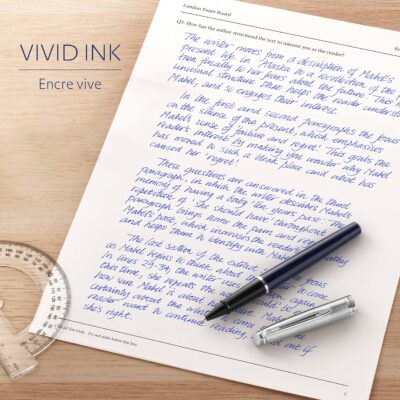 VIVID INK
Encre vive
London Exam Board
Q5. How has the author structured the text to interest you as the reader?
The writer moves from a description of Mabel's
present life in Alaska to a recollection of the
then finally to her fears about the future. This
unusual structure that helps the reader understand
Mabel, and so engages their interest.
In the first and second paragraphs the focus
on the silence of the present, which emphasises
Mabel's sense of failure and regret. This grabs the
reader's interest by making you wonder why Mabel
has moved to such a bleak place and what has
caused her 'regret'.
These questions are answered in the third
paragraph, in which the writer describes Mabel's
memory of having a baby ten years past. The
repetition of 'she should have' throughout
paragraph brings home the pain and regret
Mabel's past, which increases the reader's
and helps them to identify with Mabel
The last section of the extract
as Mabel begins to think about
In lines 29-34 the writer uses
this time, she repeats the
how sure Mabel is about
certainty about the
reader want to continue reading, out if
she's right.